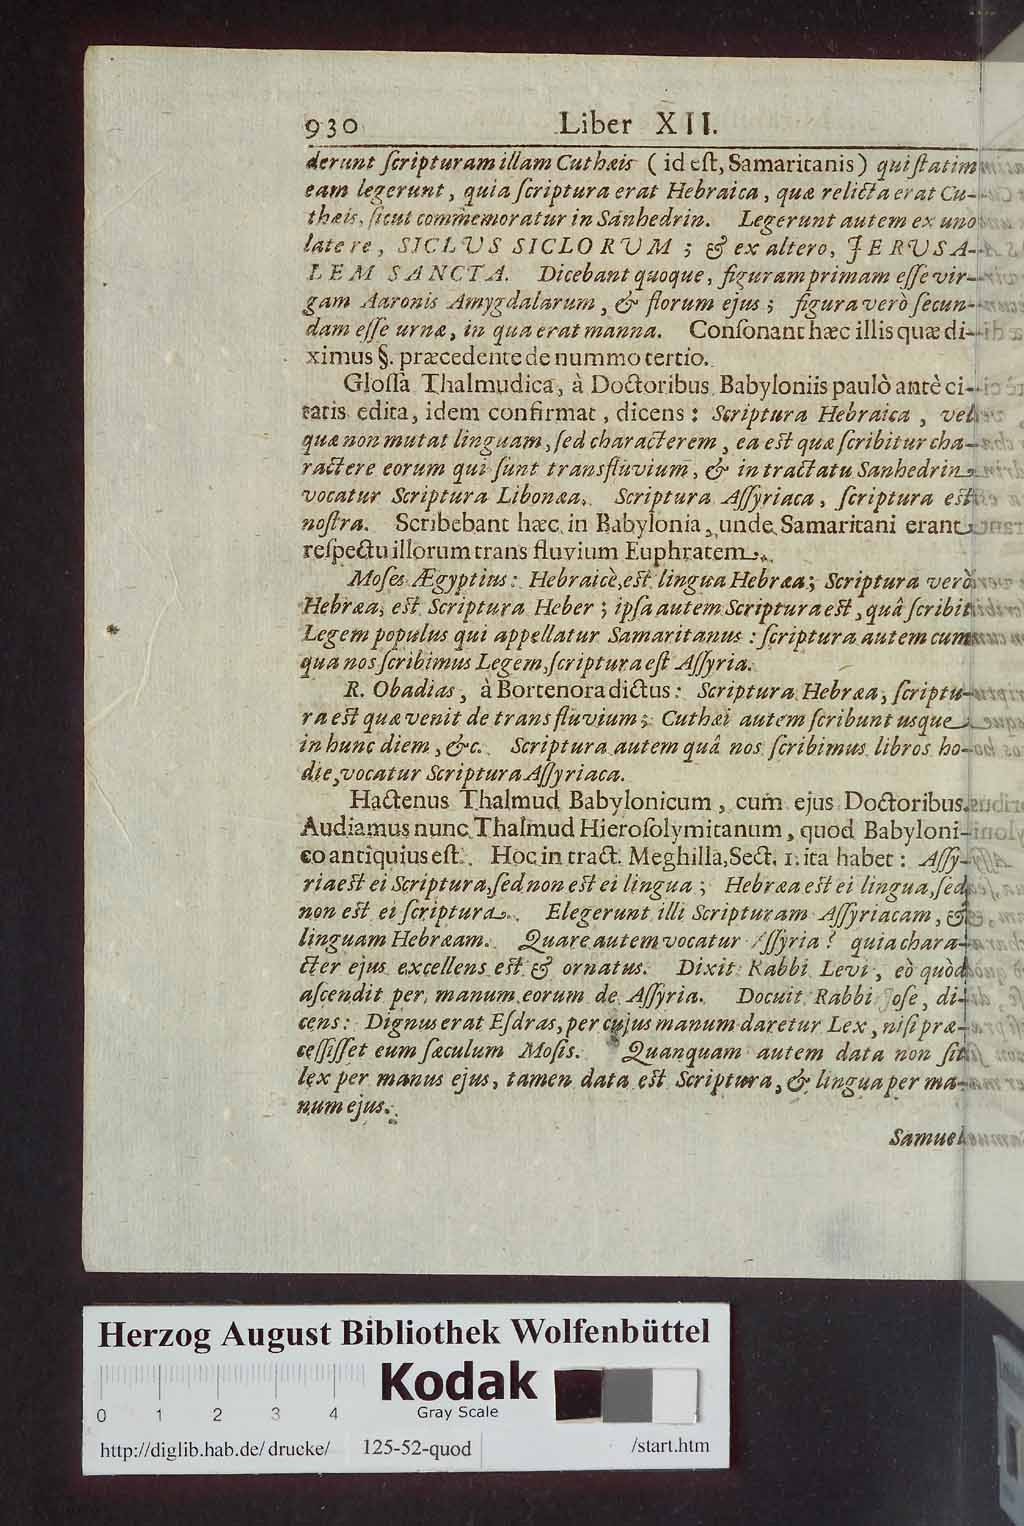 930 Liber XII.
derunt ſcripturam illam Cuthæis (id eſt, Samaritanis) qui ſtatim
eam legerunt, quia ſcriptura erat Hebraica, quæ relicta erat Cu-
thæis, ſicut commemoratur in Sanhedrin. Legerunt autem ex uno
latere, SICLUS SICLORUM; & ex altero, JERUSA-
LEM SANCTA. Dicebant quoque, figuram primam eſſe vir-
gam Aaronis Amygdalarum, & florum ejus; figura verò ſecun-
dam eſſe urnæ, in qua erat manna. Conſonant hæc illis quæ di-
ximus §. præcedente de nummo tertio.
Gloſſa Thalmudica, à Doctoribus Babyloniis paulò antè ci-
tatis edita, idem confirmat, dicens: Scriptura Hebraica, vel
quæ non mutat linguam, ſed characterem, ea eſt quæ ſcribitur cha-
ractere eorum qui ſunt trans fluvium, & in tractatu Sanhedrin
vocatur Scriptura Libonæa. Scriptura Aſſyriaca, ſcriptura eſt
noſtra. Scribebant hæc in Babylonia, unde Samaritani erant
reſpectu illorum trans fluvium Euphratem.
Moſes Ægyptius: Hebraicè, eſt lingua Hebræa; Scriptura verò
Hebræa, eſt Scriptura Heber; ipſa autem Scriptura eſt, quâ ſcribit
Legem populus qui appellatur Samaritanus: ſcriptura autem cum
qua nos ſcribimus Legem, ſcriptura eſt Aſſyria.
R. Obadias, à Bortenora dictus: Scriptura Hebræa, ſcriptu-
ra eſt quæ venit de trans fluvium; Cuthæi autem ſcribunt usque
in hunc diem, &c. Scriptura autem quâ nos ſcribimus libros ho-
die, vocatur Scriptura Aſſyriaca.
Hactenus Thalmud Babylonicum, cum ejus Doctoribus.
Audiamus nunc Thalmud Hieroſolymitanum, quod Babyloni-
co antiquius eſt. Hoc in tract. Meghilla, Sect. 1. ita habet: Aſſy-
ria eſt ei Scriptura, ſed non eſt ei lingua; Hebræa eſt ei lingua, ſed
non eſt ei ſcriptura. Elegerunt illi Scripturam Aſſyriacam, &
linguam Hebræam. Quare autem vocatur Aſſyria? quia chara-
cter ejus excellens eſt & ornatus. Dixit Rabbi Levi, eò quòd
aſcendit per manum eorum de Aſſyria. Docuit Rabbi Joſe, di-
cens: Dignus erat Eſdras, per cujus manum daretur Lex, niſi præ-
ceſſiſſet eum ſæculum Moſis. Quanquam autem data non ſit
lex per manus ejus, tamen data eſt Scriptura, & lingua per ma-
num ejus.
Samuel
Herzog August Bibliothek Wolfenbüttel
Kodak
Gray Scale
0 1 2 3 4
http://diglib.hab.de/drucke/ 125-52-quod /start.htm